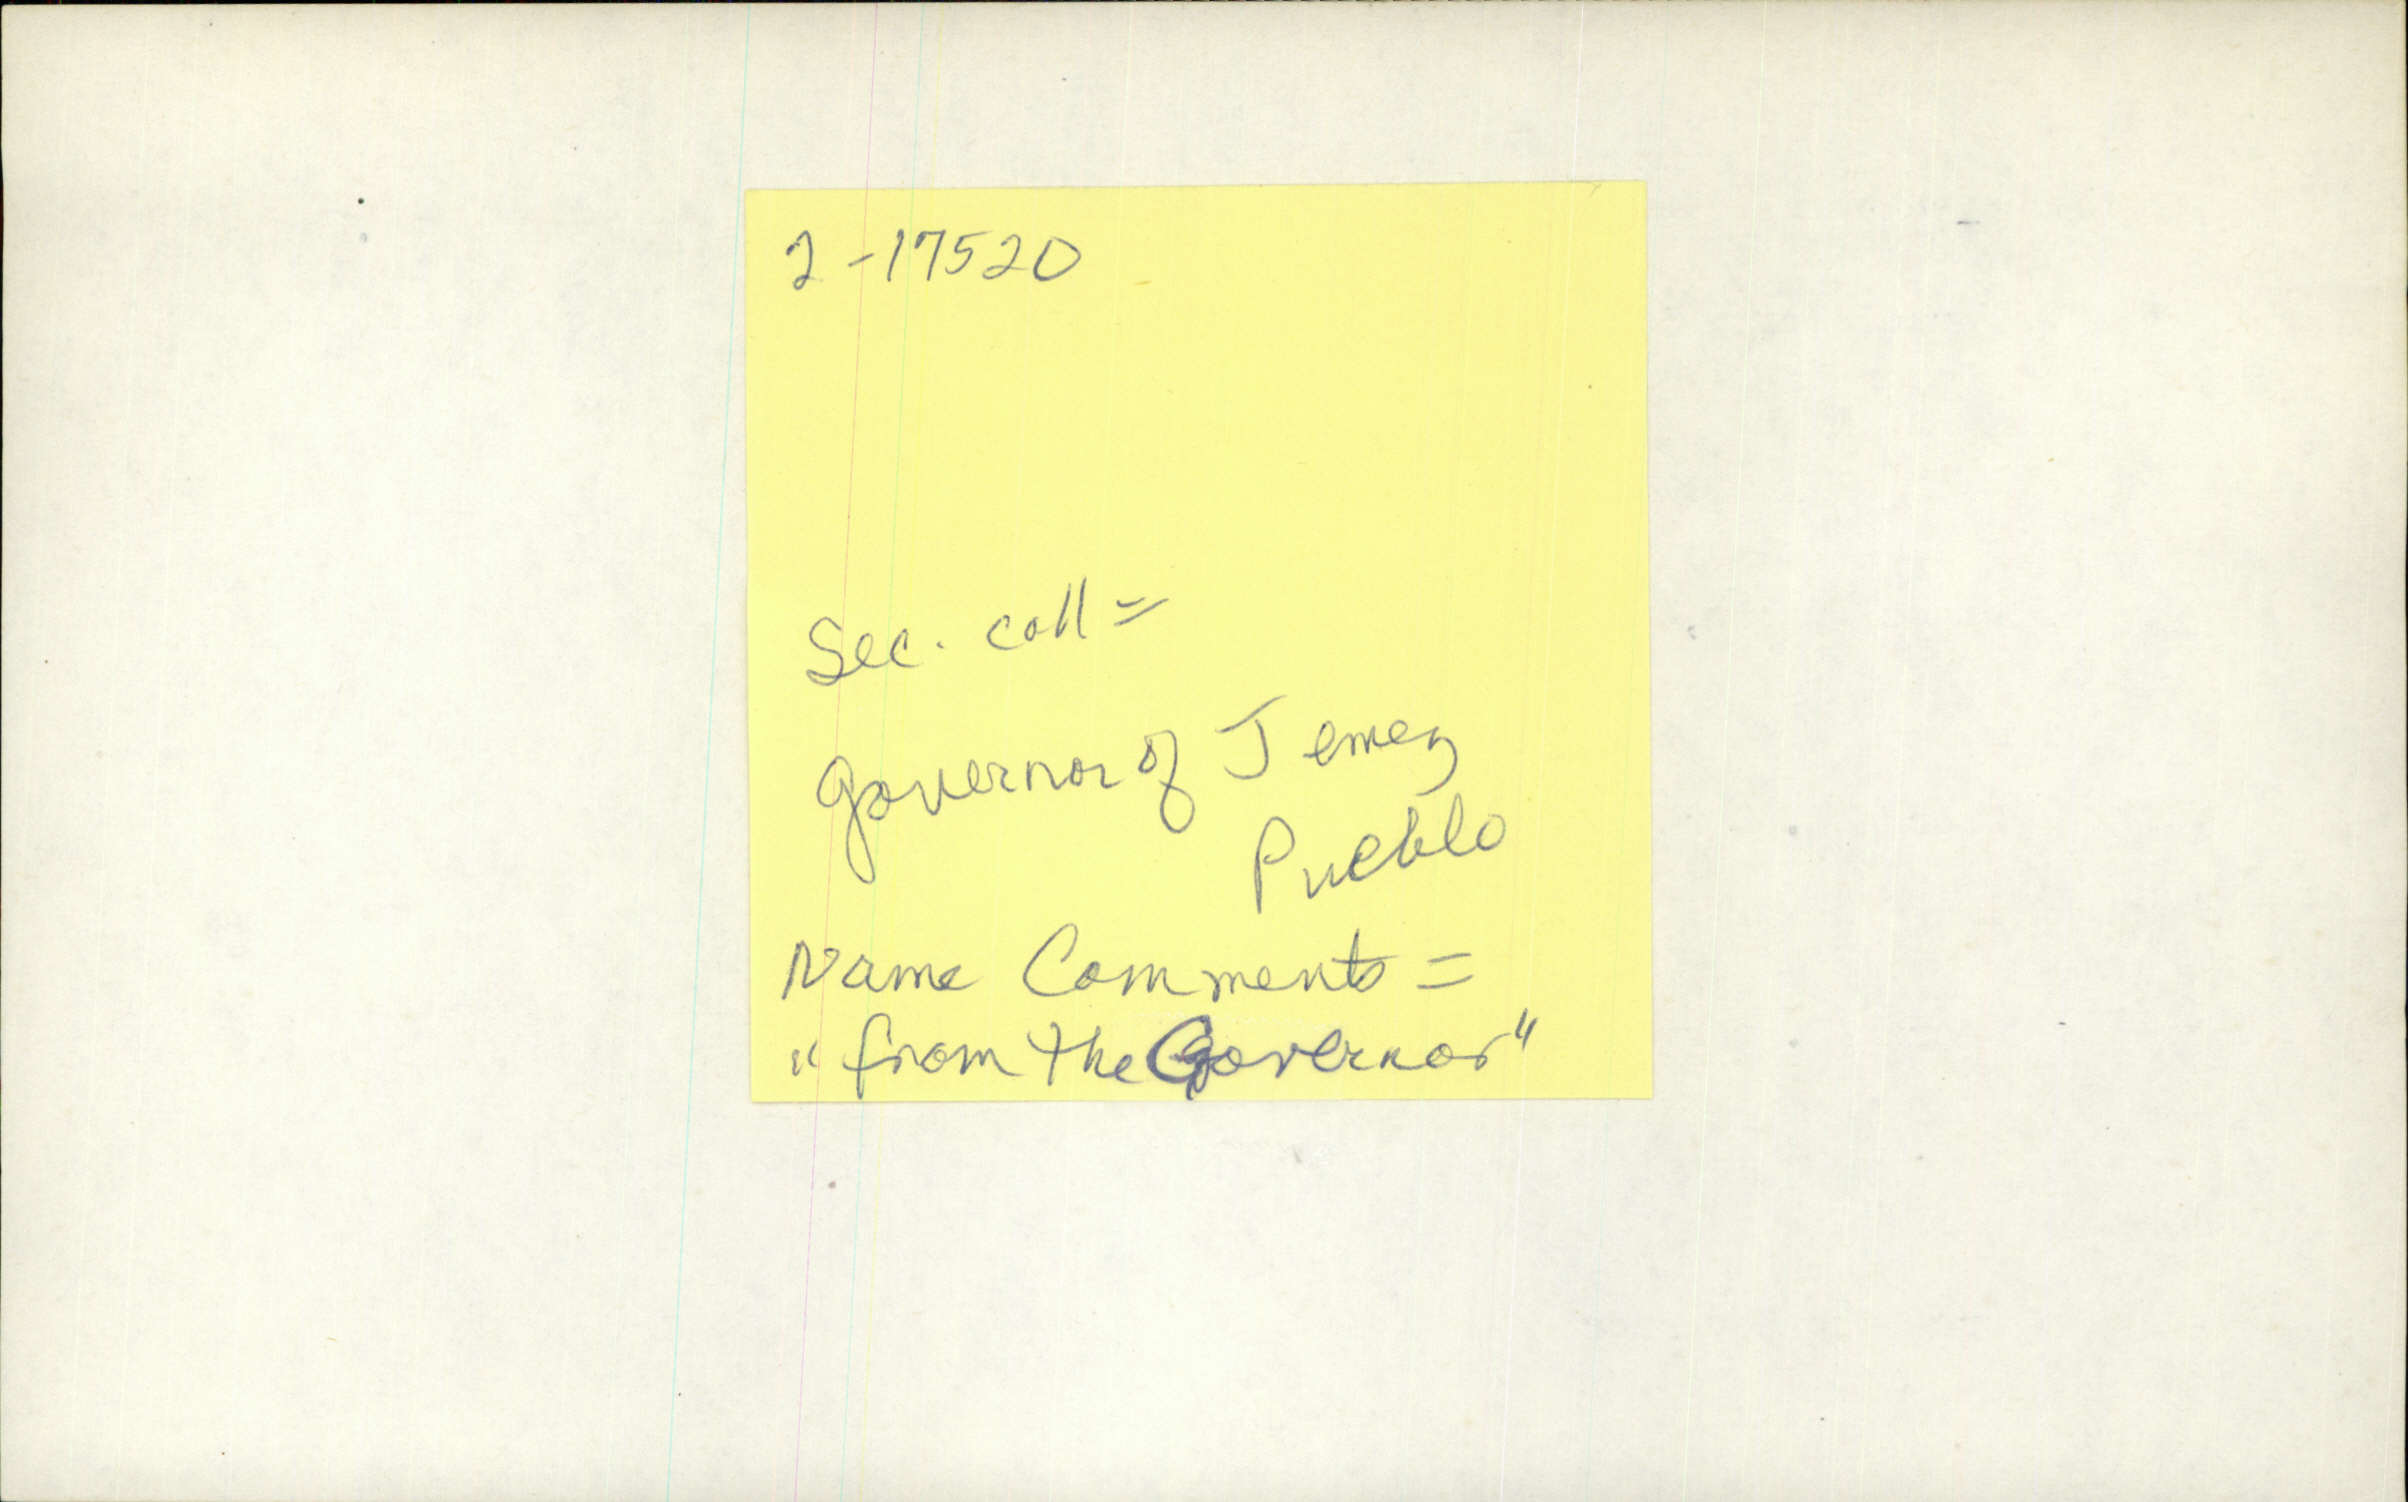 2-17520
Sec. coll =
governor of Jemez
Pueblo
Name Comments =
"from the Governor"